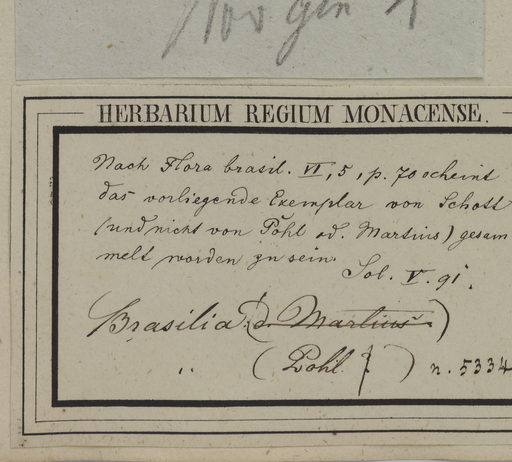 Nov gen
HERBARIUM REGIUM MONACENSE.
Nach Flora brasil. VI, 5, p. 70 scheint
das vorliegende Exemplar von Schott
(und nicht von Pohl od. Martius) gesam
melt worden zu sein.
Sol. V. 91.
Brasilia (d. Martius.)
" (Pohl. ?) n. 5334